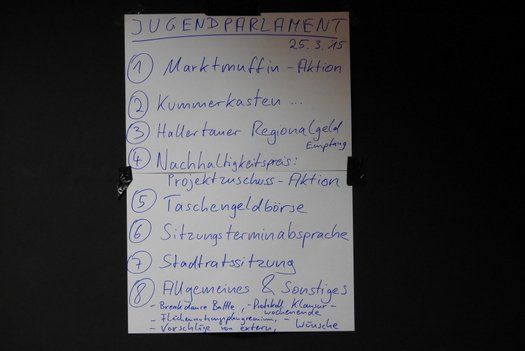 JUGENDPARLAMENT
25.3.15
1 Marktmuffin - Aktion
2 Kummerkasten ...
3 Hallertauer Regionalgeld
Empfang
4 Nachhaltigkeitspreis:
Projektzuschuss - Aktion
5 Taschengeldbörse
6 Sitzungsterminabsprache
7 Stadtratssitzung
8 Allgemeines & Sonstiges
- Breakdance Battle, - Protokoll Klausur-
wochenende
- Flächennutzungsplangremium, -
- Vorschläge von extern, - Wünsche